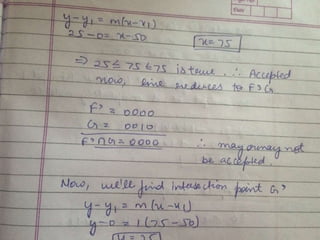 y-y₁ = m(x-x₁)
25-0 = x-50
x=75
⇒ 25 ≤ 75 ≤ 75 is true ∴ Accepted
Now, line reduces to F'G
F' = 0000
G = 0010
F'∩G = 0000 ∴ may or may not
be accepted.
Now, we'll find intersection point G'
y-y₁ = m(x-x₁)
y-0 = 1(75-50)
y=25